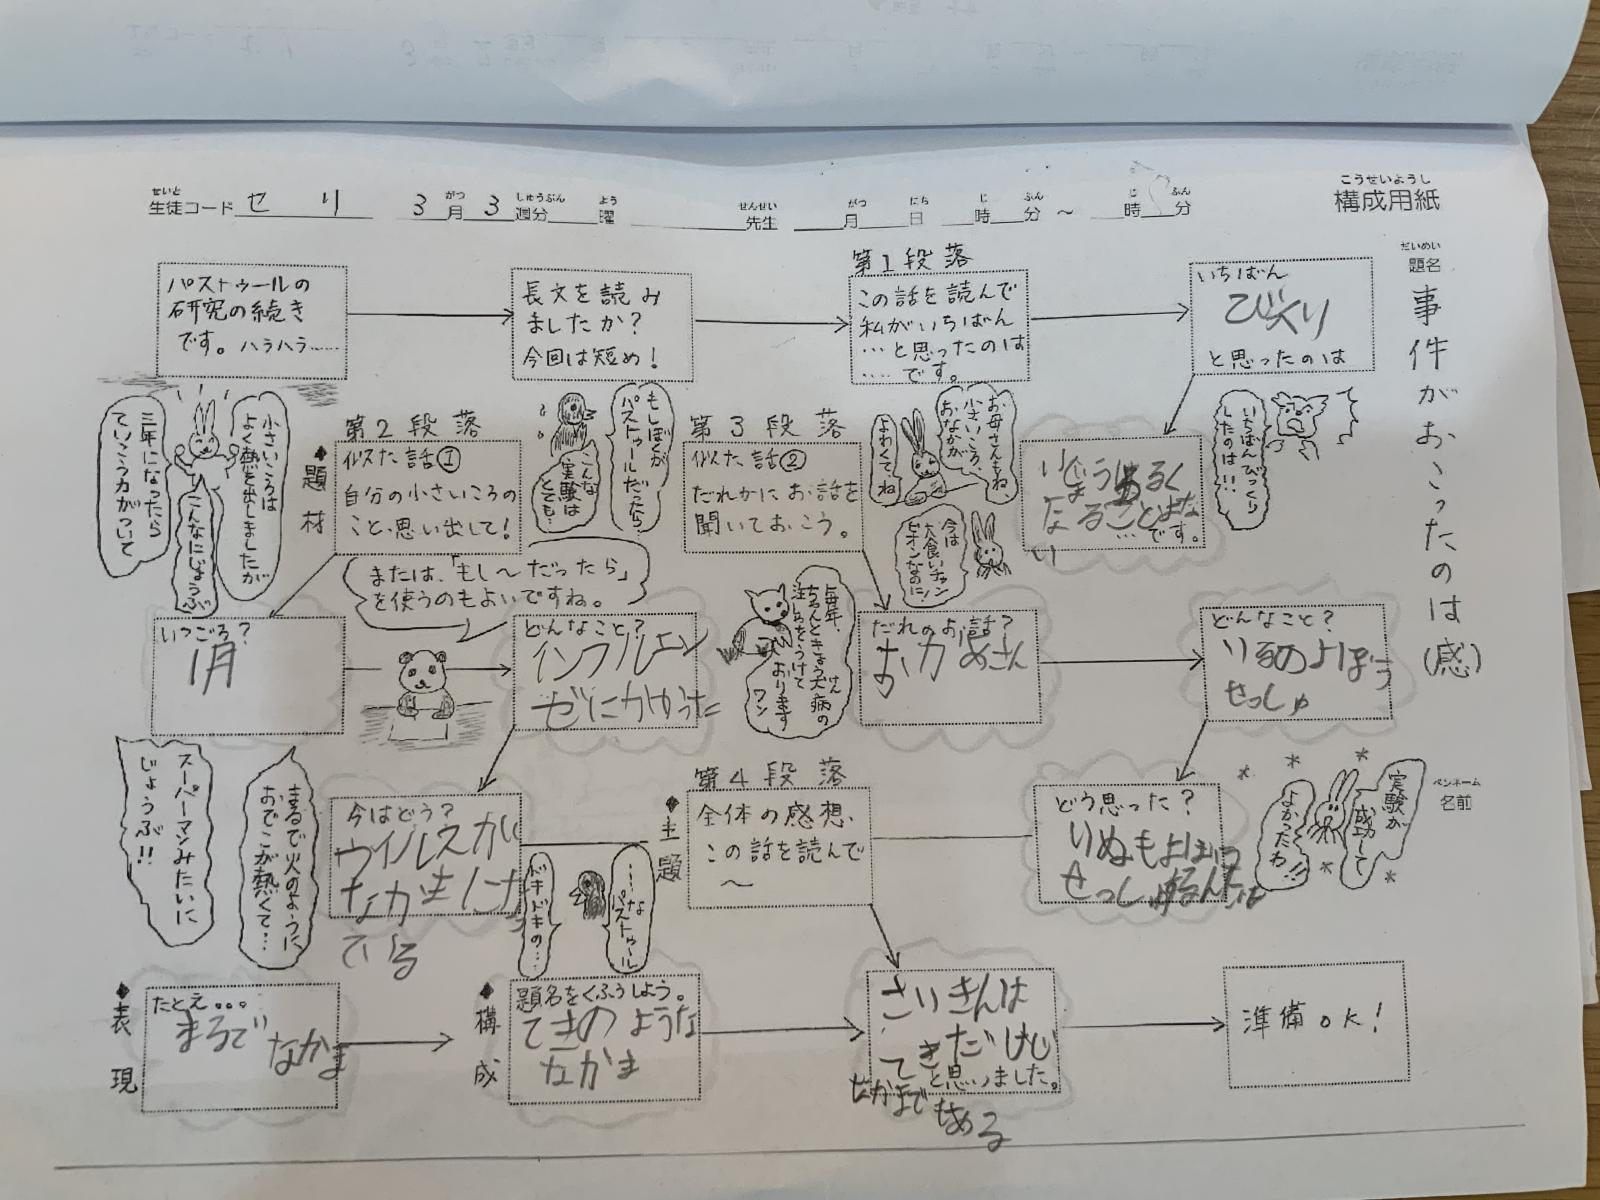 せいと
生徒コード セリ 3月3週分 曜 先生 月 日 時 分 ～ 時 分
がつ しゅうぶん よう せんせい がつ にち じ ふん じ ふん
こうせいようし
構成用紙
だいめい
題名
事件がおこったのは(感)
ペンネーム
名前
パストゥールの
研究の続き
です。ハラハラ……
長文を読み
ましたか？
今回は短め！
第1段落
この話を読んで
私がいちばん
…と思ったのは
…… です。
いちばん
びっくり
と思ったのは
いちばんびっくり
したのは！！
なることはな
い
… です。
小さいころは
よく熱を出しましたが
三年になったら
ていこう力がついて
こんなにじょうぶ
◆題材
第2段落
似た話①
自分の小さいころの
こと、思い出して！
または、「もし～だったら」
を使うのもよいですね。
もしぼくが
パストゥールだったら、
こんな
実験は
とても…
第3段落
似た話②
だれかにお話を
聞いておこう。
お母さんもね、
小さいころ、
おなかが
よわくてね
今は
大食いチャン
ピオンなのに！
いつごろ？
1月
どんなこと？
インフルエン
ザにかかった
毎年、
ちゃんときょう犬病の
けん
注しゃをうけて
おります
ワン
だれのお話？
おかあさん
どんなこと？
いぬのよぼう
せっしゅ
まるで火のように
おでこが熱くて…
スーパーマンみたいに
じょうぶ！！
今はどう？
ウイルスが
なかまになっ
ている
◆主題
第4段落
全体の感想、
この話を読んで
～
……な
パストゥール
ドキドキの…
どう思った？
いぬもよぼう
せっしゅするんだな
実験が
成功して
よかったわ！！
◆表現
たとえ。。。
まるで
なかま
◆構成
題名をくふうしよう。
てきのような
なかま
さいきんは
てきだけど
と思いました。
なかまで
もある
準備OK！